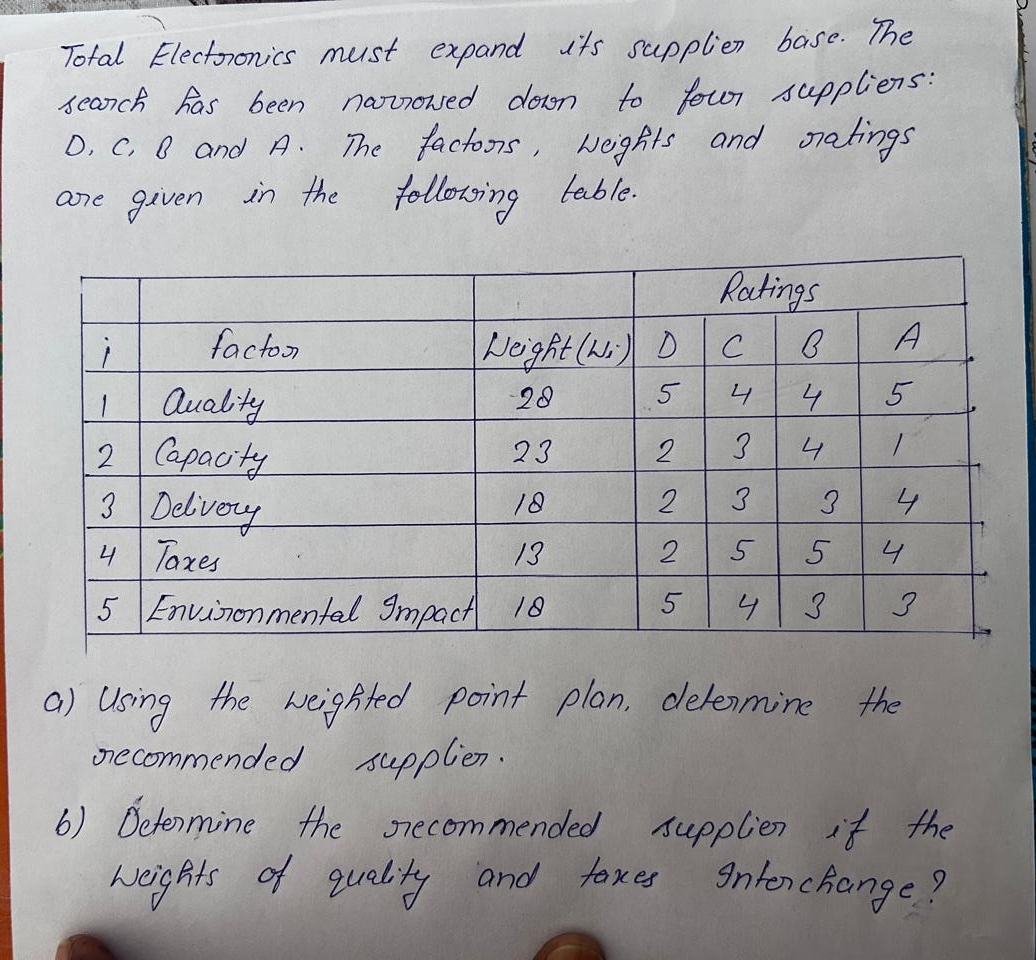 Total Electronics must expand its supplier base. The
search has been narrowed down to four suppliers:
D, C, B and A. The factors, weights and ratings
are given in the following table.
Ratings
i factor Weight (Wi) D C B A
1 Quality 28 5 4 4 5
2 Capacity 23 2 3 4 1
3 Delivery 18 2 3 3 4
4 Taxes 13 2 5 5 4
5 Environmental Impact 18 5 4 3 3
a) Using the weighted point plan, determine the
recommended supplier.
b) Determine the recommended supplier if the
weights of quality and taxes Interchange?